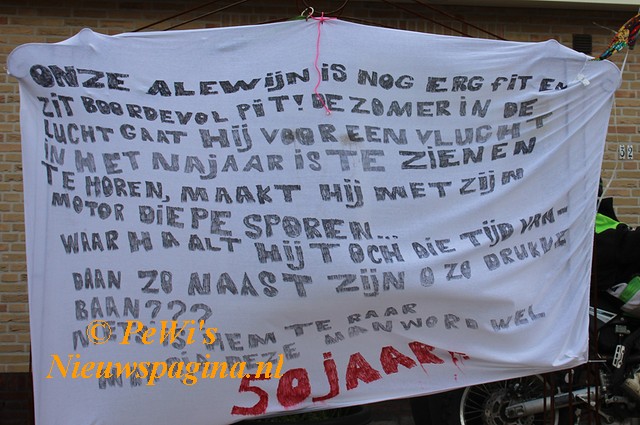 ONZE ALEWIJN IS NOG ERG FIT EN
ZIT BOORDEVOL PIT! DE ZOMER IN DE
LUCHT GAAT HIJ VOOR EEN VLUCHT
IN HET NAJAAR IS TE ZIEN EN
TE HOREN, MAAKT HIJ MET ZIJN
MOTOR DIEPE SPOREN...
WAAR HAALT HIJ TOCH DIE TIJD VAN-
DAAN ZO NAAST ZIJN O ZO DRUKKE
BAAN???
HEM TE RAAR
DEZE MAN WORD WEL
50 JAAR
© PeWi's
Nieuwspagina.nl
32